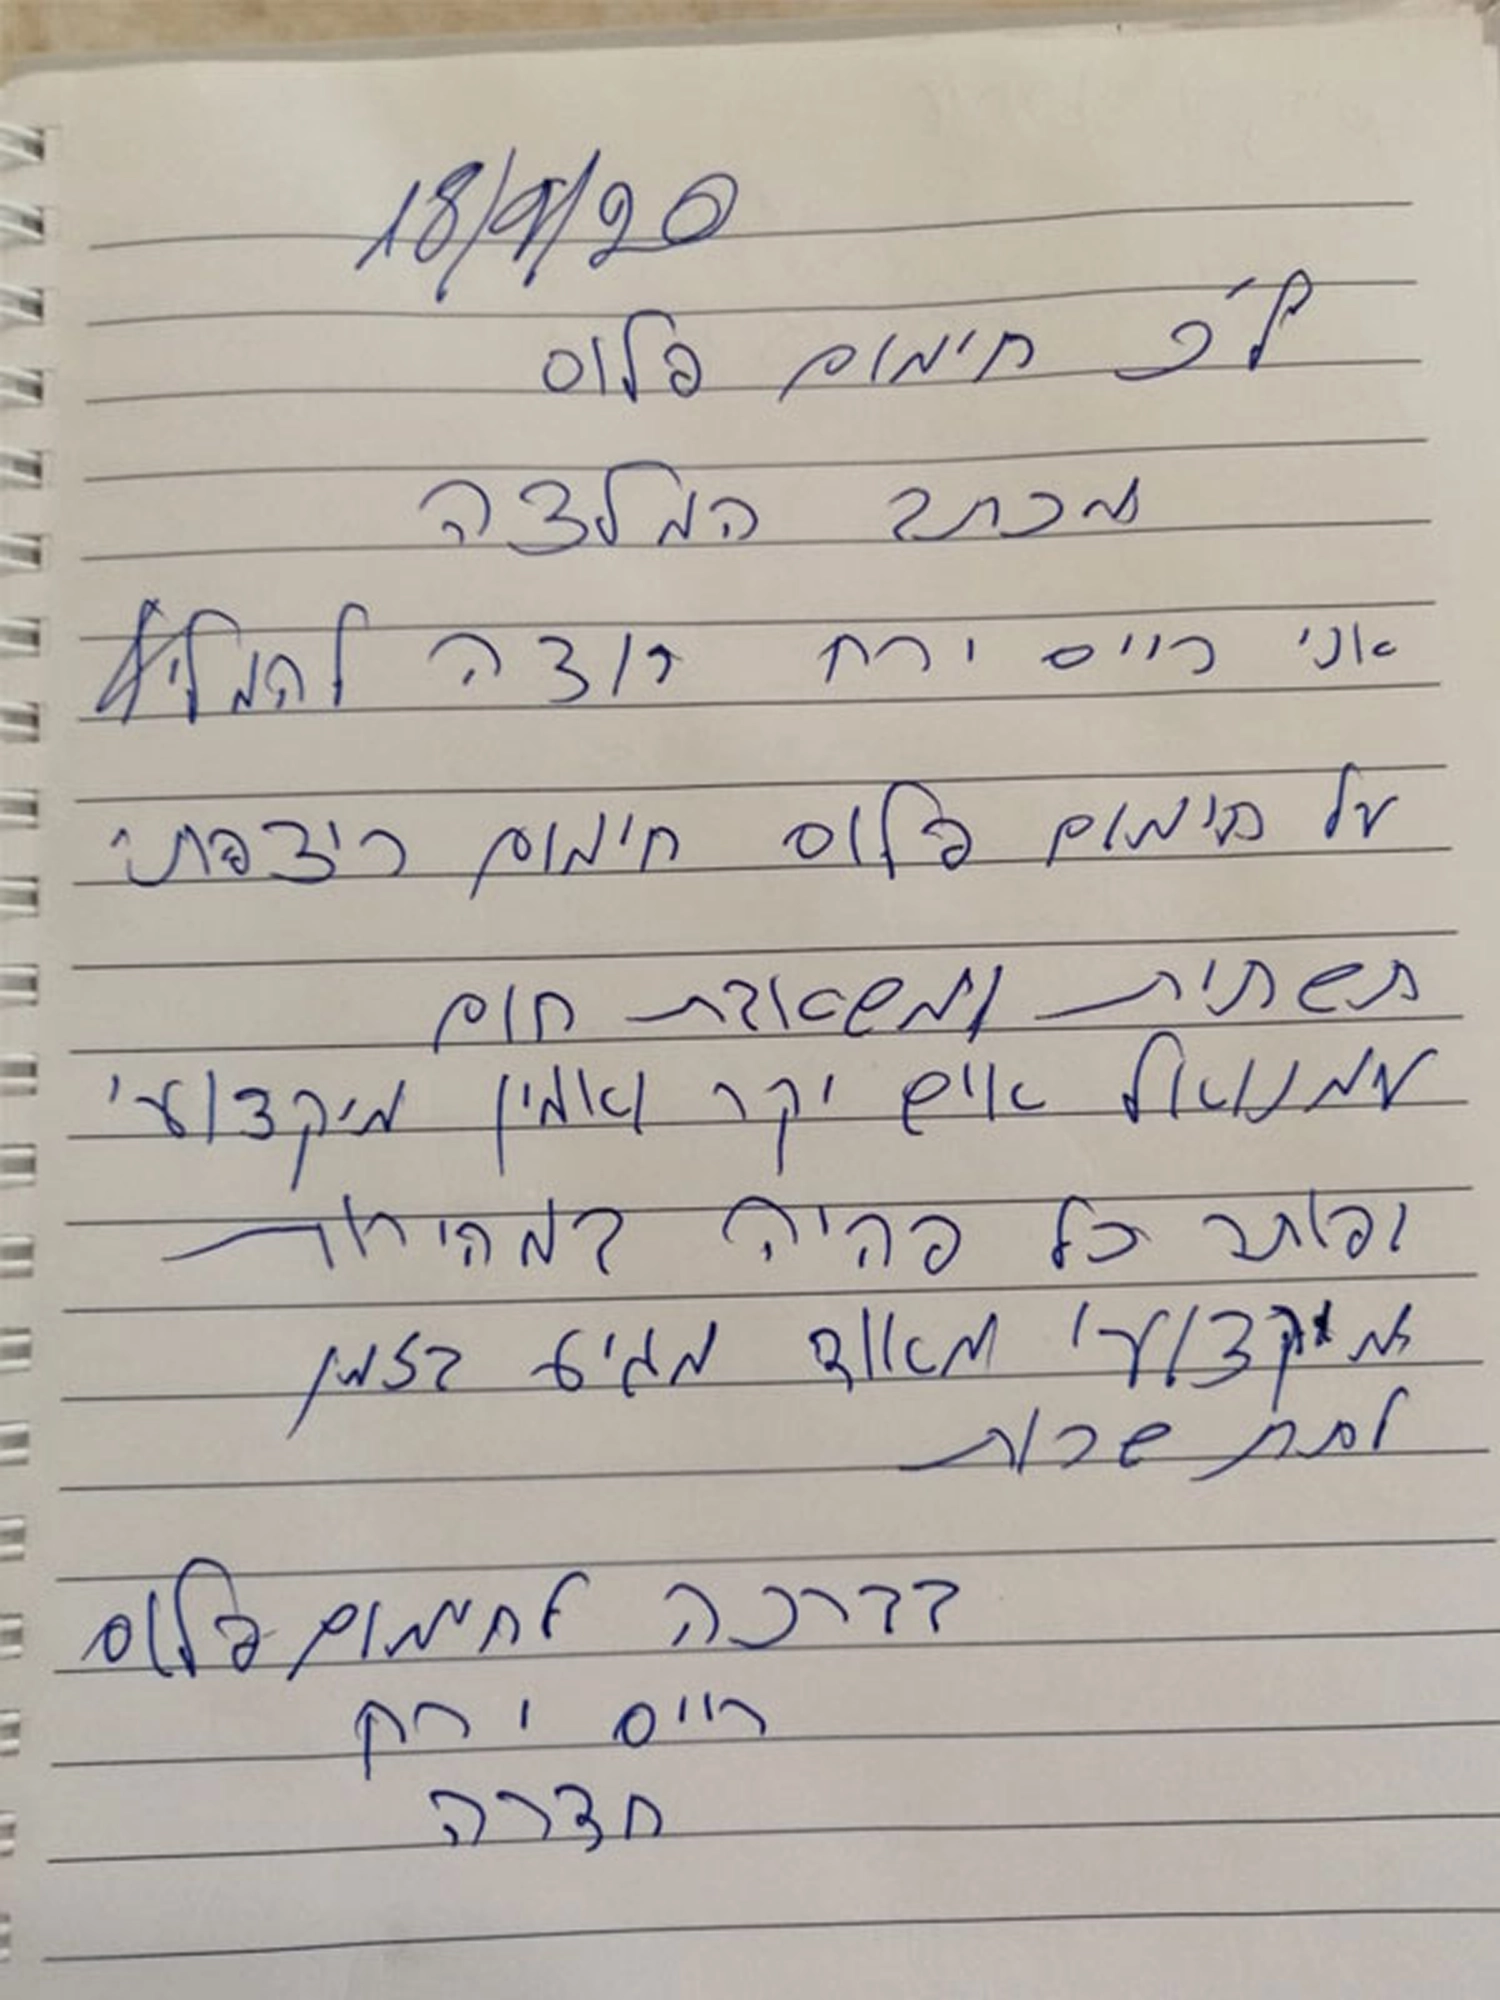 18/9/20
לכ' חימום פלוס
מכתב המלצה
אני רייס ירח רוצה להמליץ
על חימום פלוס חימום ריצפתי
תשתית ומשאבת חום
עמנואל איש יקר ואמין מיקצועי
ופותר כל בהיה במהירות
מיקצועי מאוד מגיע בזמן
לתת שרות
בברכה לחימום פלוס
רייס ירח
חדרה